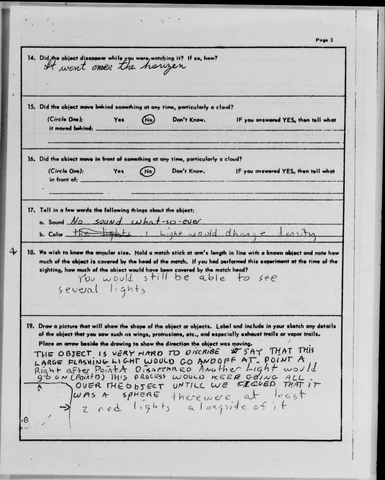 Page 3
14. Did the object disappear while you were watching it? If so, how?
It went over the horizen
15. Did the object move behind something at any time, particularly a cloud?
(Circle One): Yes No Don't Know. IF you answered YES, then tell what
it moved behind:
16. Did the object move in front of something at any time, particularly a cloud?
(Circle One): Yes No Don't Know. IF you answered YES, then tell what
in front of:
17. Tell in a few words the following things about the object:
a. Sound No sound what-so-ever
b. Color the lights 1 light would change density
18. We wish to know the angular size. Hold a match stick at arm's length in line with a known object and note how
much of the object is covered by the head of the match. If you had performed this experiment at the time of the
sighting, how much of the object would have been covered by the match head?
You would still be able to see
several lights
19. Draw a picture that will show the shape of the object or objects. Label and include in your sketch any details
of the object that you saw such as wings, protrusions, etc., and especially exhaust trails or vapor trails.
Place an arrow beside the drawing to show the direction the object was moving.
THE OBJECT IS VERY HARD TO DISCRIBE SAY THAT THIS
LARGE FLASHING LIGHT WOULD GO AND OFF AT POINT A
Right after Point A DISAPPEARED Another Light would
go on (Point B) THIS PROCESS WOULD KEEP GOING ALL
OVER THE OBJECT UNTILL WE FIGUED THAT IT
WAS A SPHERE there were at least
2 red lights alongside of it
B